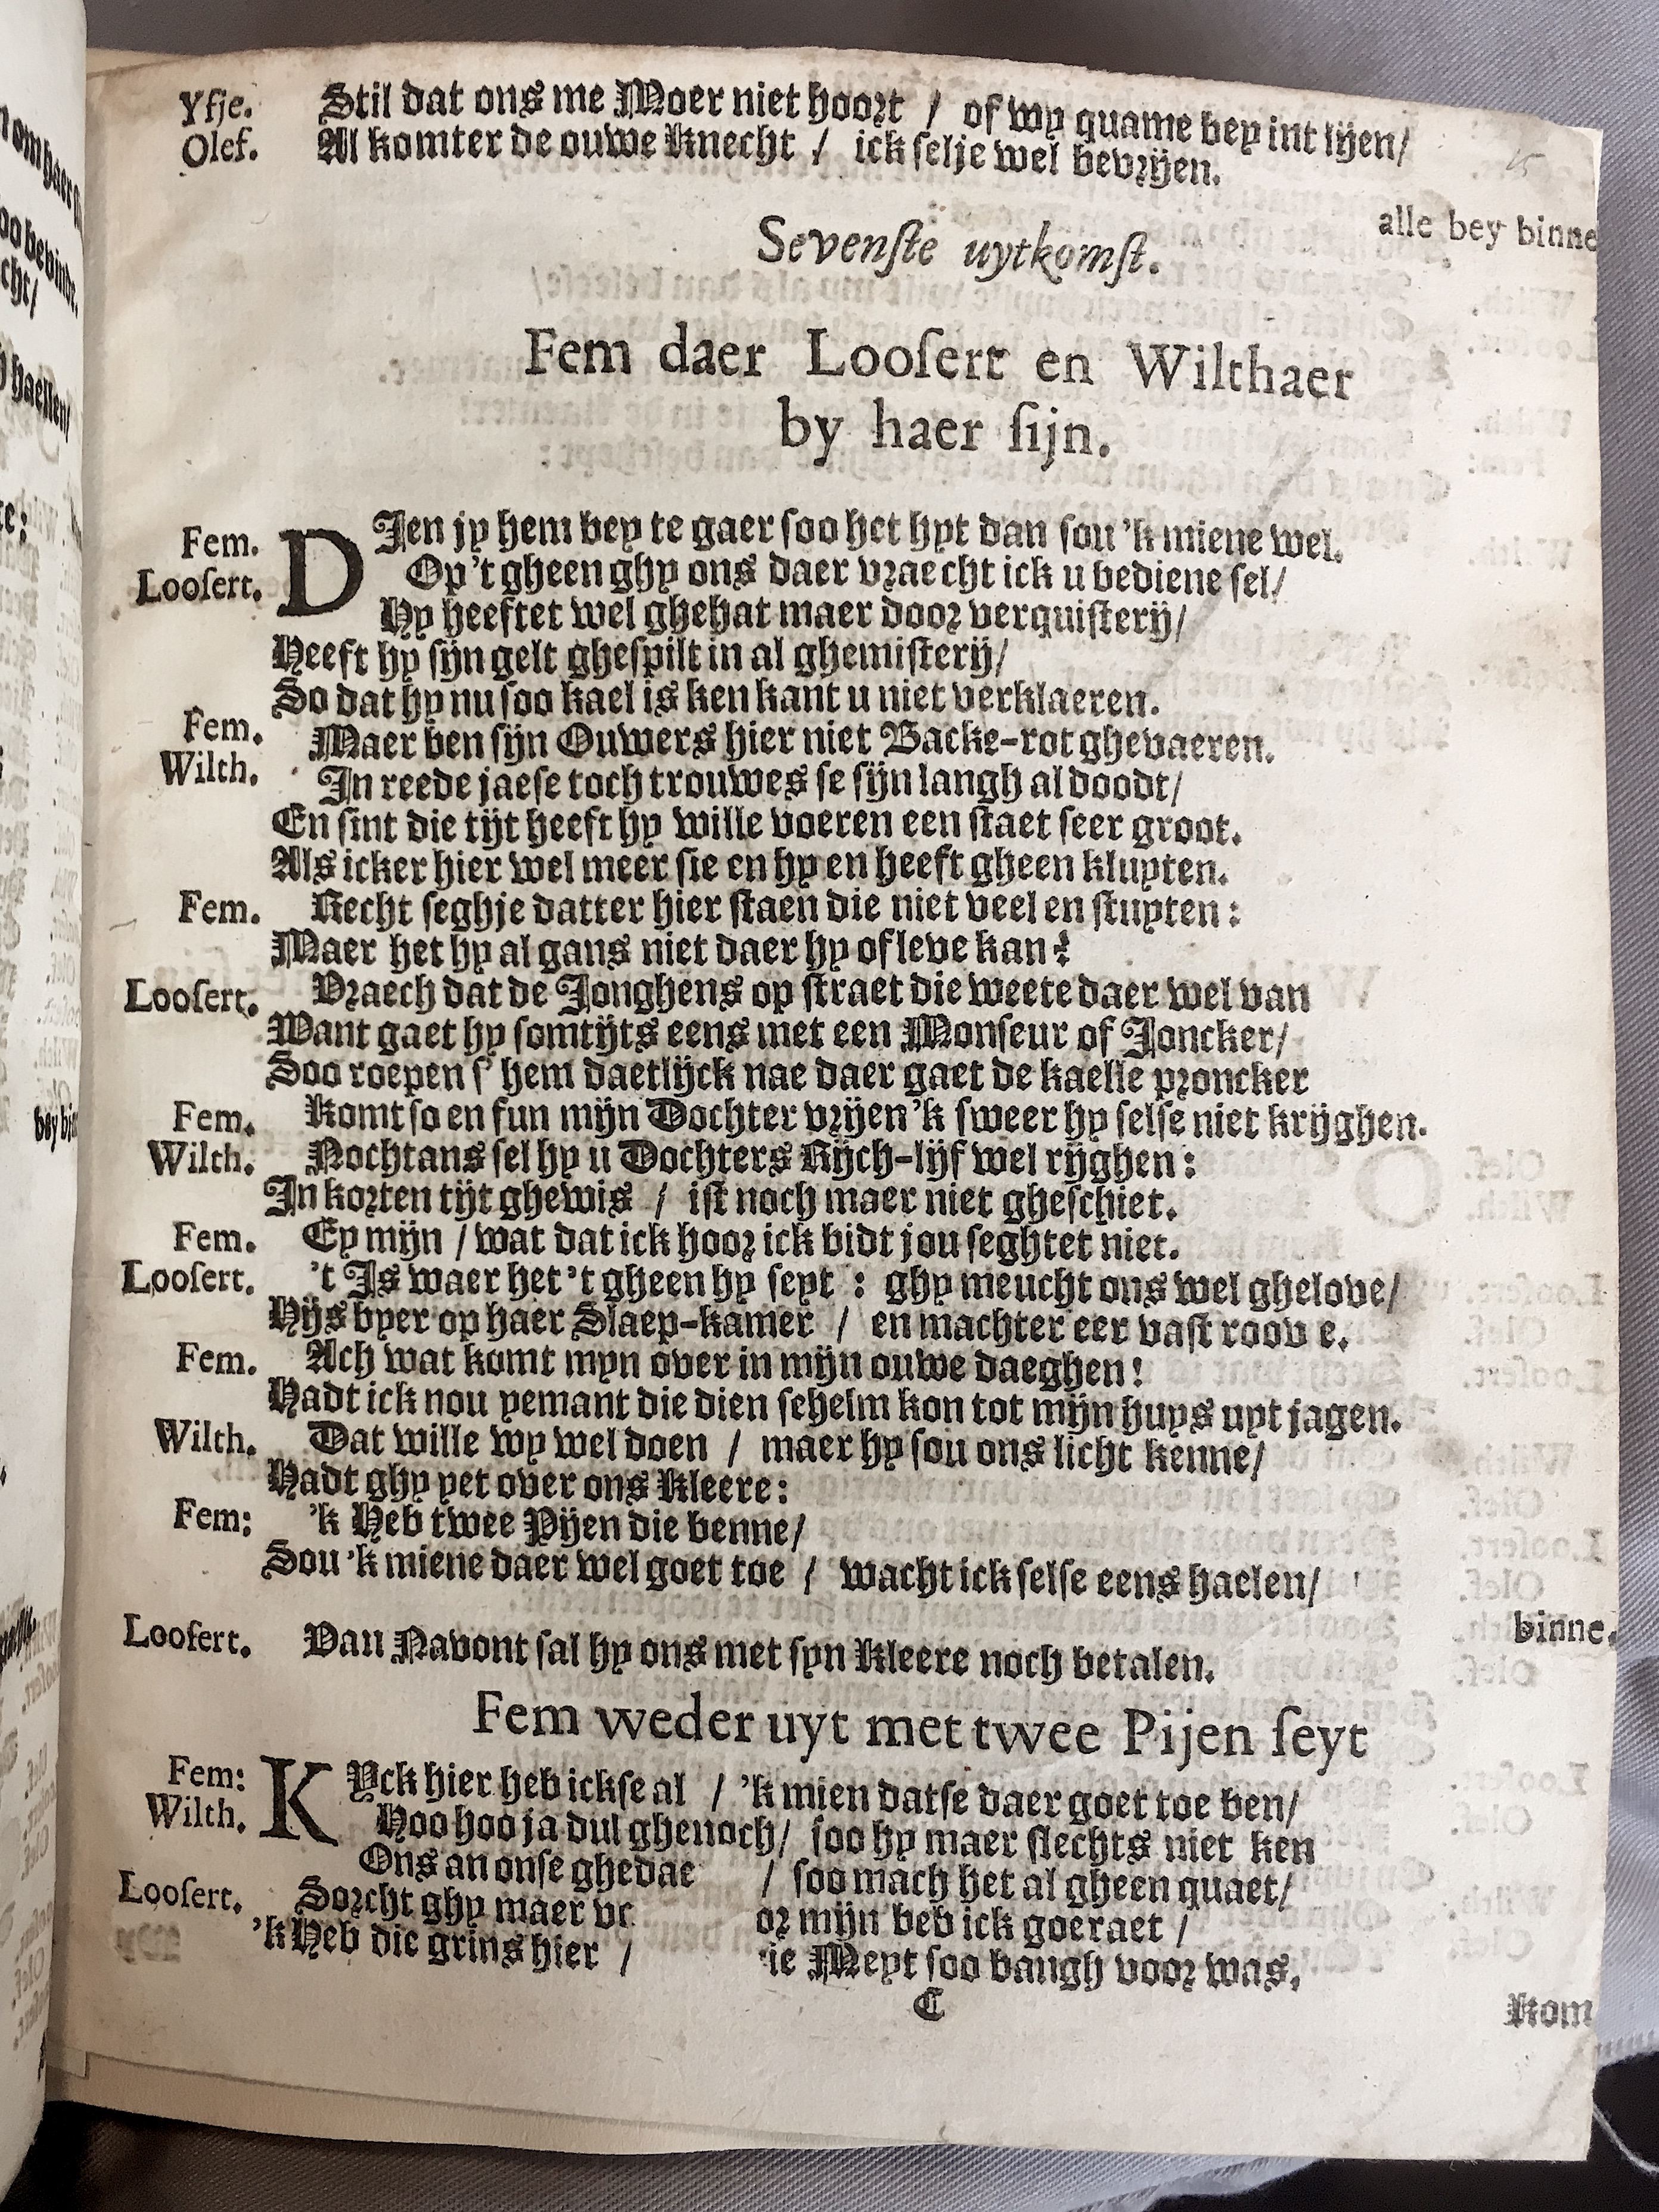 Yfje. Stil dat ons me Moer niet hoort / of wy quame bey int lijen/
Olef. Al komter de ouwe Knecht / ick selje wel bevrijen.
alle bey binne
Sevenſte uytkomſt.
Fem daer Looſert en Wilthaer
by haer ſijn.
Fem. DJen jy hem bey te gaer soo het hyt dan sou 'k miene wel.
Looſert. Op 't gheen ghy ons daer vraecht ick u bediene sel/
Hy heeftet wel ghehat maer door verquisterij/
Heeft hy sijn gelt ghespilt in al ghemisterij/
So dat hy nu soo kael is ken kant u niet verklaeren.
Fem. Maer ben sijn Ouwers hier niet Backe-rot ghevaeren.
Wilth. In reede jaese toch trouwes se sijn langh al doodt/
En sint die tijt heeft hy wille voeren een staet seer groot.
Als icker hier wel meer sie en hy en heeft gheen kluyten.
Fem. Recht seghje datter hier staen die niet veel en stuyten:
Maer het hy al gans niet daer hy of leve kan?
Looſert. Vraech dat de Jonghens op straet die weete daer wel van
Want gaet hy somtijts eens met een Monseur of Joncker/
Soo roepen s' hem daetlijck nae daer gaet de kaelle proncker
Fem. Komt so en fun mijn Dochter vrijen 'k sweer hy selse niet krijghen.
Wilth. Nochtans sel hy u Dochters Rijch-lijf wel rijghen:
In korten tijt ghewis / ist noch maer niet gheschiet.
Fem. Ey mijn / wat dat ick hoor ick bidt jou seghtet niet.
Looſert. 't Is waer het 't gheen hy seyt : ghy meucht ons wel ghelove/
Hijs byer op haer Slaep-kamer / en machter eer vast roov e.
Fem. Ach wat komt myn over in mijn ouwe daeghen!
Hadt ick nou yemant die dien sehelm kon tot mijn huys uyt jagen.
Wilth. Dat wille wy wel doen / maer hy sou ons licht kenne/
Hadt ghy yet over ons Kleere:
Fem: 'k Heb twee Pijen die benne/
Sou 'k miene daer wel goet toe / wacht ick selse eens haelen/
binne.
Looſert. Van Navont sal hy ons met syn Kleere noch betalen.
Fem weder uyt met twee Pijen ſeyt
Fem: KYck hier heb ickse al / 'k mien datse daer goet toe ben/
Wilth. Hoo hoo ja dul ghenoch/ soo hy maer slechts niet ken
Ons an onse ghedae / soo mach het al gheen quaet/
Looſert. Sorcht ghy maer vo or mijn beb ick goeraet /
'k Heb die grins hier / ie Meyt soo baugh voor was,
C
Kom